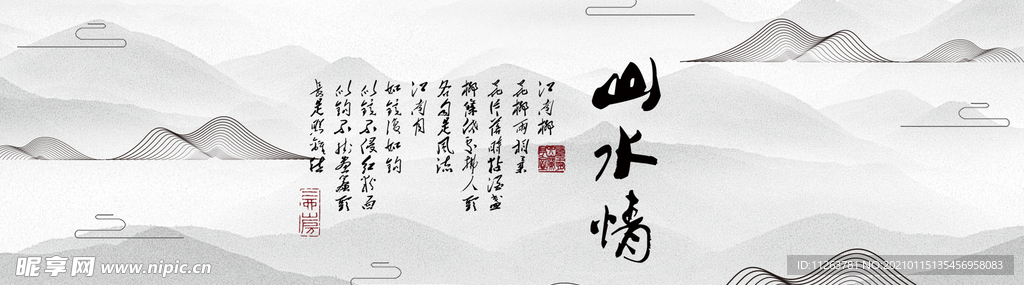 山水情
江南柳
花柳两相柔
花片落时黏酒盏
柳条低处拂人头
各自是风流
江南月
如镜复如钩
似镜不侵红粉面
似钩不挂画帘头
长是照离愁
昵享网 www.nipic.cn
ID:11263781 NO:20210115135456958083